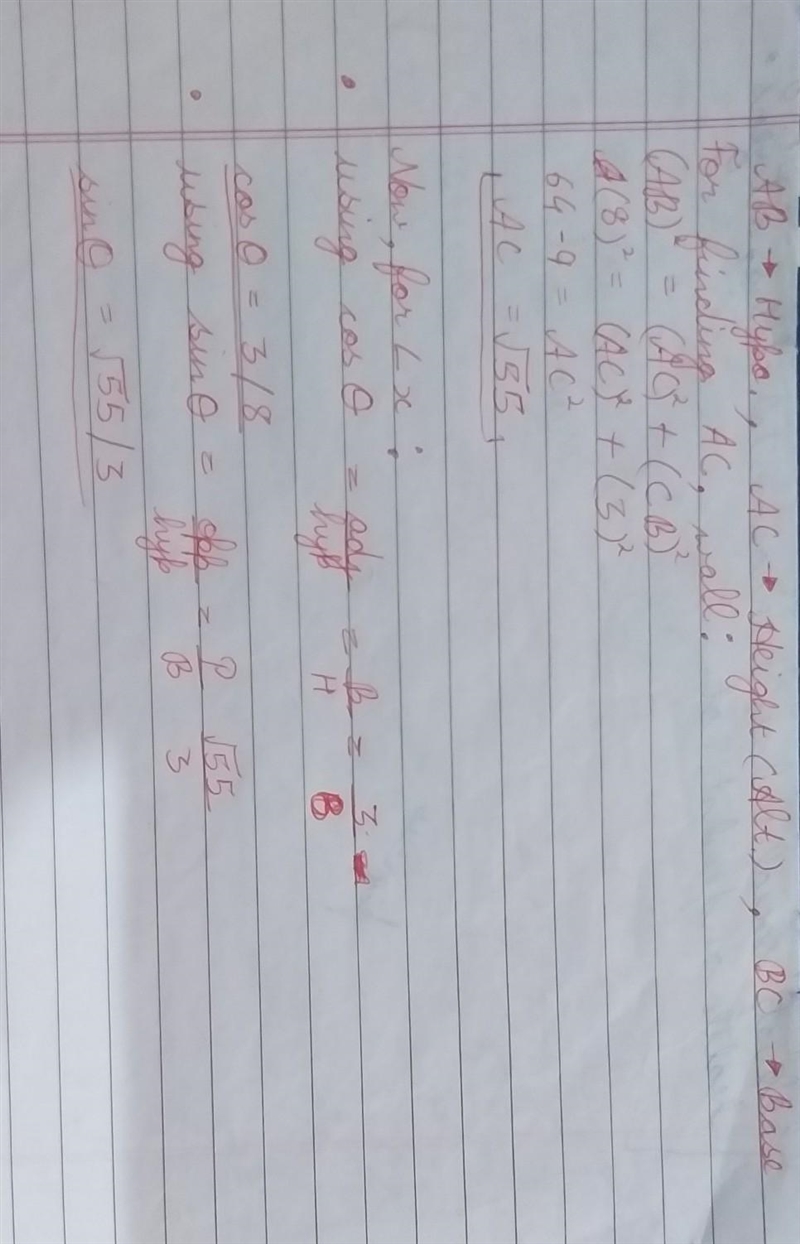 AB → Hypo., AC → Height (Alt.), BC → Base
For finding AC, wall:
(AB)² = (AC)² + (CB)²
(8)² = (AC)² + (3)²
64 - 9 = AC²
AC = √55
Now, for ∠x:
• using cosθ = adj/hyp = B/H = 3/8
cosθ = 3/8
• using sinθ = opp/hyp = P/B √55/3
sinθ = √55/3